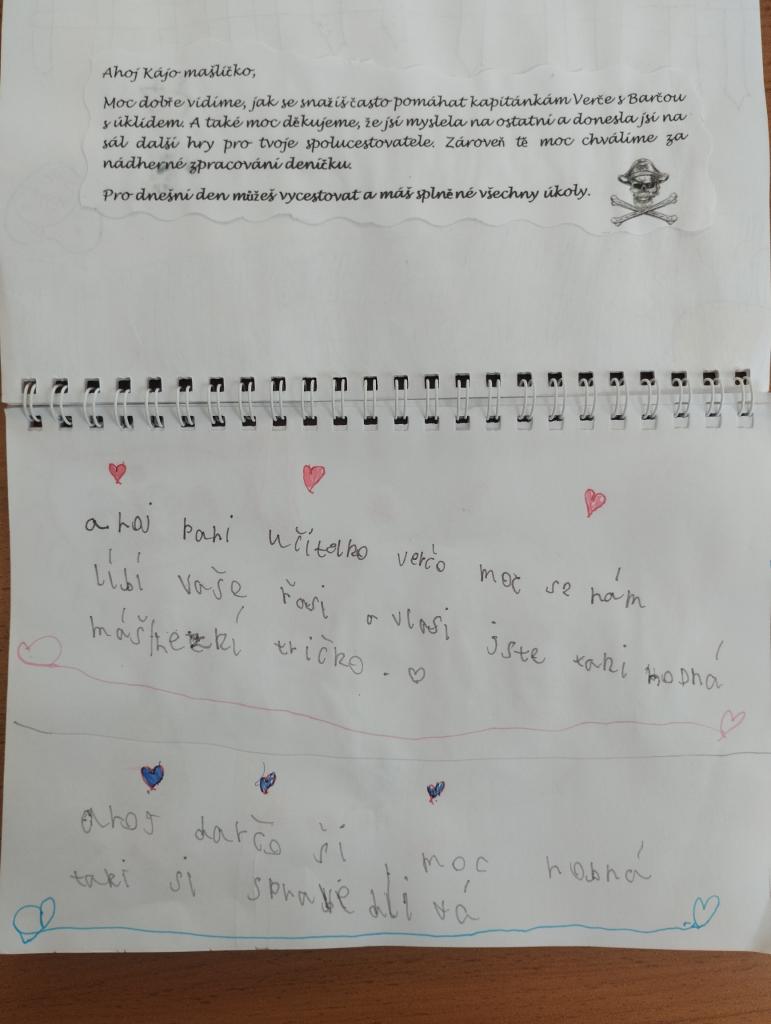 Ahoj Kájo mašličko,
Moc dobře vidíme, jak se snažíš často pomáhat kapitánkám Verče s Barčou
s úklidem. A také moc děkujeme, že jsi myslela na ostatní a donesla jsi na
sál další hry pro tvoje spolucestovatele. Zároveň tě moc chválíme za
nádherné zpracování deníčku.
Pro dnešní den můžeš vycestovat a máš splněné všechny úkoly.
ahoj pani učítelko verčo moc se nám
líbí vaše řasi a vlasi jste taki hodná
máš hezkí tričko.
ahoj barčo ši moc hodná
taki si spravědlivá